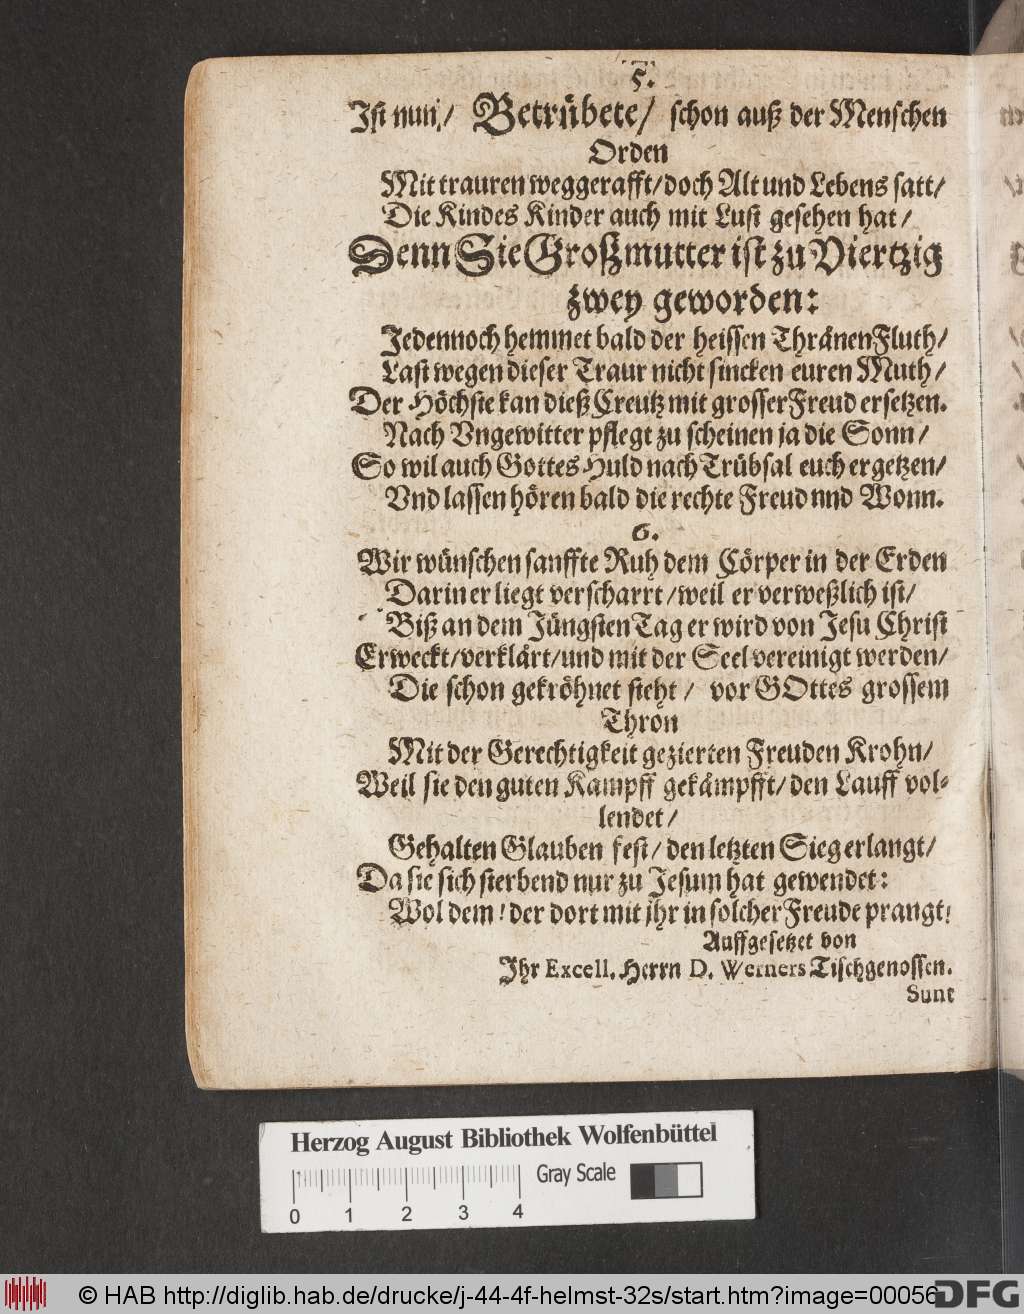 5.
Ist nun/ Betrübete/ schon auß der Menschen
Orden
Mit trauren weggerafft/ doch Alt und Lebens satt/
Die Kindes Kinder auch mit Lust gesehen hat/
Denn Sie Großmutter ist zu Viertzig
zwey geworden:
Jedennoch hemmet bald der heissen Thränen Fluth/
Last wegen dieser Traur nicht sincken euren Muth/
Der Höchste kan dieß Creutz mit grosser Freud ersetzen.
Nach Vngewitter pflegt zu scheinen ja die Sonn/
So wil auch Gottes Huld nach Trübsal euch ergetzen/
Vnd lassen hören bald die rechte Freud nnd Wonn.
6.
Wir wünschen sanffte Ruh dem Cörper in der Erden
Darin er liegt verscharrt/ weil er verweßlich ist/
Biß an dem Jüngsten Tag er wird von Jesu Christ
Erweckt/ verklärt/ und mit der Seel vereinigt werden/
Die schon gekröhnet steht/ vor GOttes grossem
Thron
Mit der Gerechtigkeit gezierten Freuden Krohn/
Weil sie den guten Kampff gekämpfft/ den Lauff vol-
lendet/
Gehalten Glauben fest/ den letzten Sieg erlangt/
Da sie sich sterbend nur zu Jesum hat gewendet:
Wol dem! der dort mit jhr in solcher Freude prangt!
Auffgesetzet von
Jhr Excell. Herrn D. Werners Tischgenossen.
Sunt
Herzog August Bibliothek Wolfenbüttel
Gray Scale
0 1 2 3 4
© HAB http://diglib.hab.de/drucke/j-44-4f-helmst-32s/start.htm?image=00056
DFG